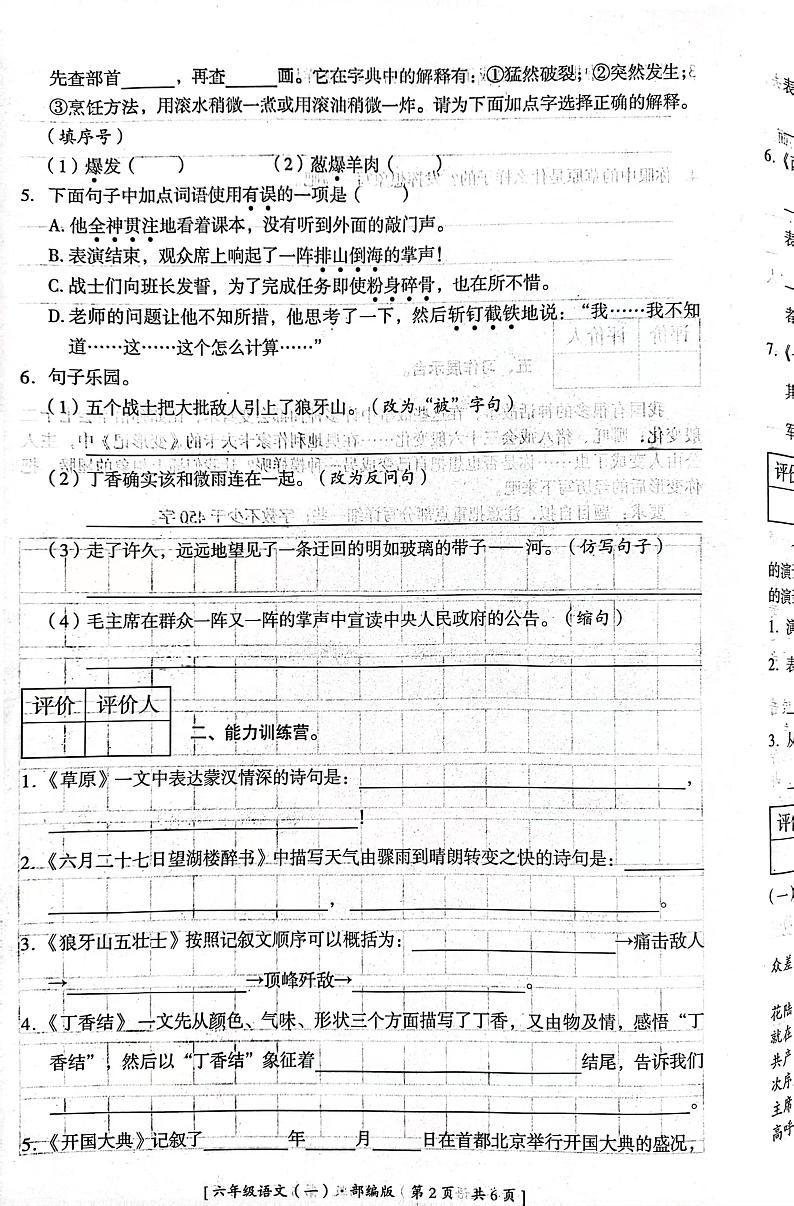 先查部首______，再查______画。它在字典中的解释有：①猛然破裂；②突然发生；
③烹饪方法，用滚水稍微一煮或用滚油稍微一炸。请为下面加点字选择正确的解释。
（填序号）
（1）爆发（　　）　（2）葱爆羊肉（　　）
5. 下面句子中加点词语使用有误的一项是（　　）
A. 他全神贯注地看着课本，没有听到外面的敲门声。
B. 表演结束，观众席上响起了一阵排山倒海的掌声！
C. 战士们向班长发誓，为了完成任务即使粉身碎骨，也在所不惜。
D. 老师的问题让他不知所措，他思考了一下，然后斩钉截铁地说：“我……我不知
道……这……这个怎么计算……”
6. 句子乐园。
（1）五个战士把大批敌人引上了狼牙山。（改为“被”字句）
（2）丁香确实该和微雨连在一起。（改为反问句）
（3）走了许久，远远地望见了一条迂回的明如玻璃的带子——河。（仿写句子）
（4）毛主席在群众一阵又一阵的掌声中宣读中央人民政府的公告。（缩句）
评价 评价人
二、能力训练营。
1.《草原》一文中表达蒙汉情深的诗句是：______，
______！
2.《六月二十七日望湖楼醉书》中描写天气由骤雨到晴朗转变之快的诗句是：______
______，______。
3.《狼牙山五壮士》按照记叙文顺序可以概括为：______→痛击敌人
→______→顶峰歼敌→______。
4.《丁香结》一文先从颜色、气味、形状三个方面描写了丁香，又由物及情，感悟“丁
香结”；然后以“丁香结”象征着______结尾，告诉我们
______。
5.《开国大典》记叙了______年____月____日在首都北京举行开国大典的盛况，
[六年级语文（一） 部编版 第2页 共6页]
6.《
7.《
评价
的演
1. 演
2. 表
3. 从
评价
（一）
众差
花陆
就在
共产
次序
主席
高呼